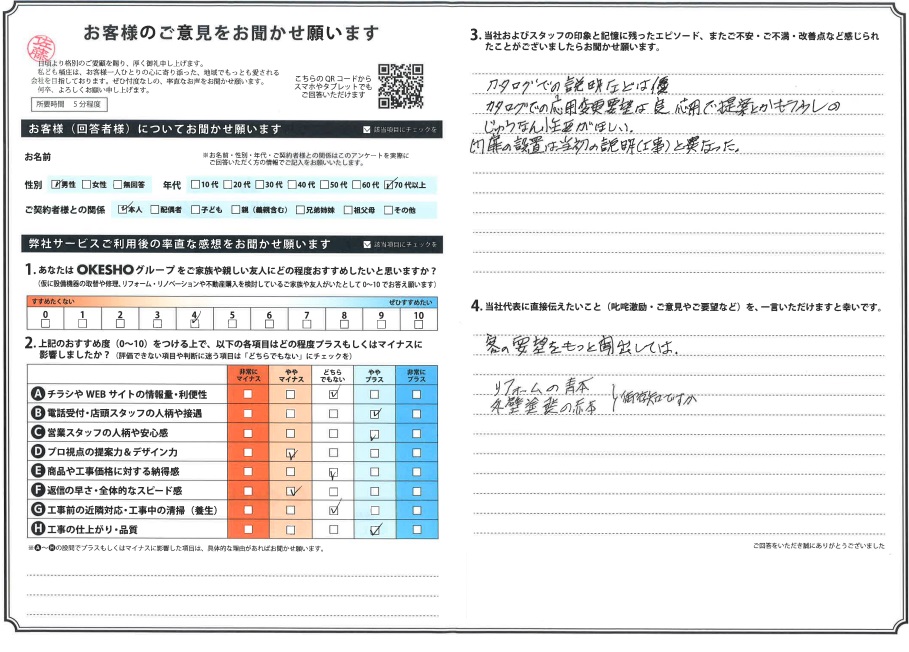 お客様のご意見をお聞かせ願います
佐藤
日頃より格別のご愛顧を賜り、厚く御礼申し上げます。
私ども桶庄は、お客様一人ひとりの心に寄り添った、地域でもっとも愛される
会社を目指しております。ぜひ忖度なしの、率直なお声をお聞かせ願います。
何卒、よろしくお願い申し上げます。
所要時間 5分程度
こちらのQRコードから
スマホやタブレットでも
ご回答いただけます
お客様（回答者様）についてお聞かせ願います
該当項目にチェックを
お名前
※お名前・性別・年代・ご契約者様との関係はこのアンケートを実際に
ご回答いただく方の情報でご記入をお願いいたします。
性別 男性 女性 無回答 年代 10代 20代 30代 40代 50代 60代 70代以上
ご契約者様との関係 本人 配偶者 子ども 親（義親含む） 兄弟姉妹 祖父母 その他
弊社サービスご利用後の率直な感想をお聞かせ願います
該当項目にチェックを
1. あなたは OKESHOグループ をご家族や親しい友人にどの程度おすすめしたいと思いますか？
（仮に設備機器の取替や修理、リフォーム・リノベーションや不動産購入を検討しているご家族や友人がいたとして 0〜10 でお答え願います）
すすめたくない ぜひすすめたい
0 1 2 3 4 5 6 7 8 9 10
2. 上記のおすすめ度（0〜10）をつける上で、以下の各項目はどの程度プラスもしくはマイナスに
影響しましたか？（評価できない項目や判断に迷う項目は「どちらでもない」にチェックを）
非常にマイナス ややマイナス どちらでもない ややプラス 非常にプラス
A チラシや WEB サイトの情報量・利便性
B 電話受付・店頭スタッフの人柄や接遇
C 営業スタッフの人柄や安心感
D プロ視点の提案力＆デザイン力
E 商品や工事価格に対する納得感
F 返信の早さ・全体的なスピード感
G 工事前の近隣対応・工事中の清掃（養生）
H 工事の仕上がり・品質
※A〜Hの設問でプラスもしくはマイナスに影響した項目は、具体的な理由があればお聞かせ願います。
3. 当社およびスタッフの印象と記憶に残ったエピソード、またご不安・ご不満・改善点など感じられ
たことがございましたらお聞かせ願います。
カタログでの説明などは優
カタログでの応用変更要望は良 応用で提案とかもう少しの
じゅうなん性がほしい.
門扉の設置は当初の説明(工事)と異なった。
4. 当社代表に直接伝えたいこと（叱咤激励・ご意見やご要望など）を、一言いただけますと幸いです。
客の要望をもっと聞出しては.
リフォームの青本
外壁塗装の赤本
御存知ですか
ご回答をいただき誠にありがとうございました